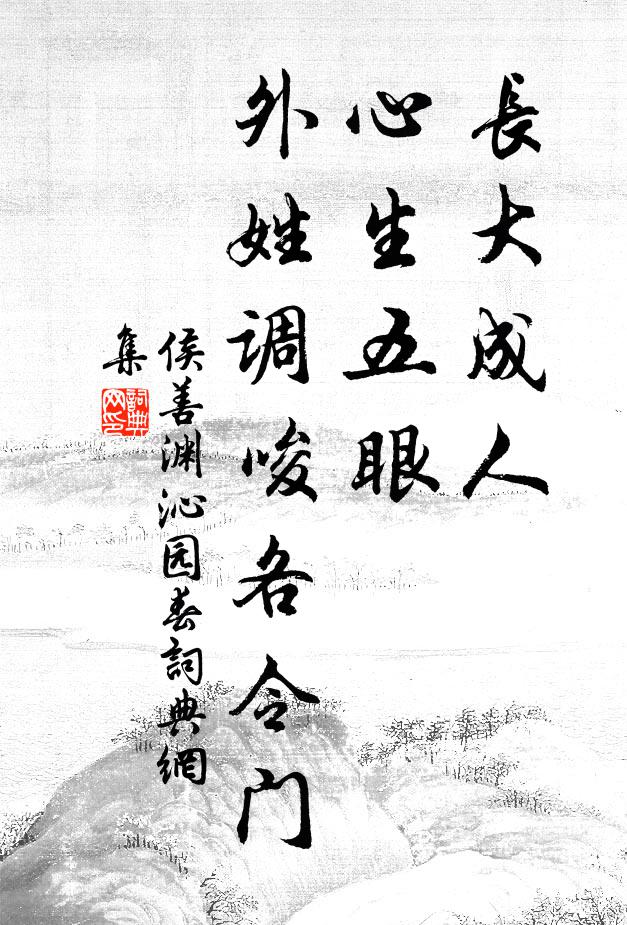 長大成人
心生五眼
外姓调唆各令门
侯善渊沁园春詞典網
集
詞典
网印